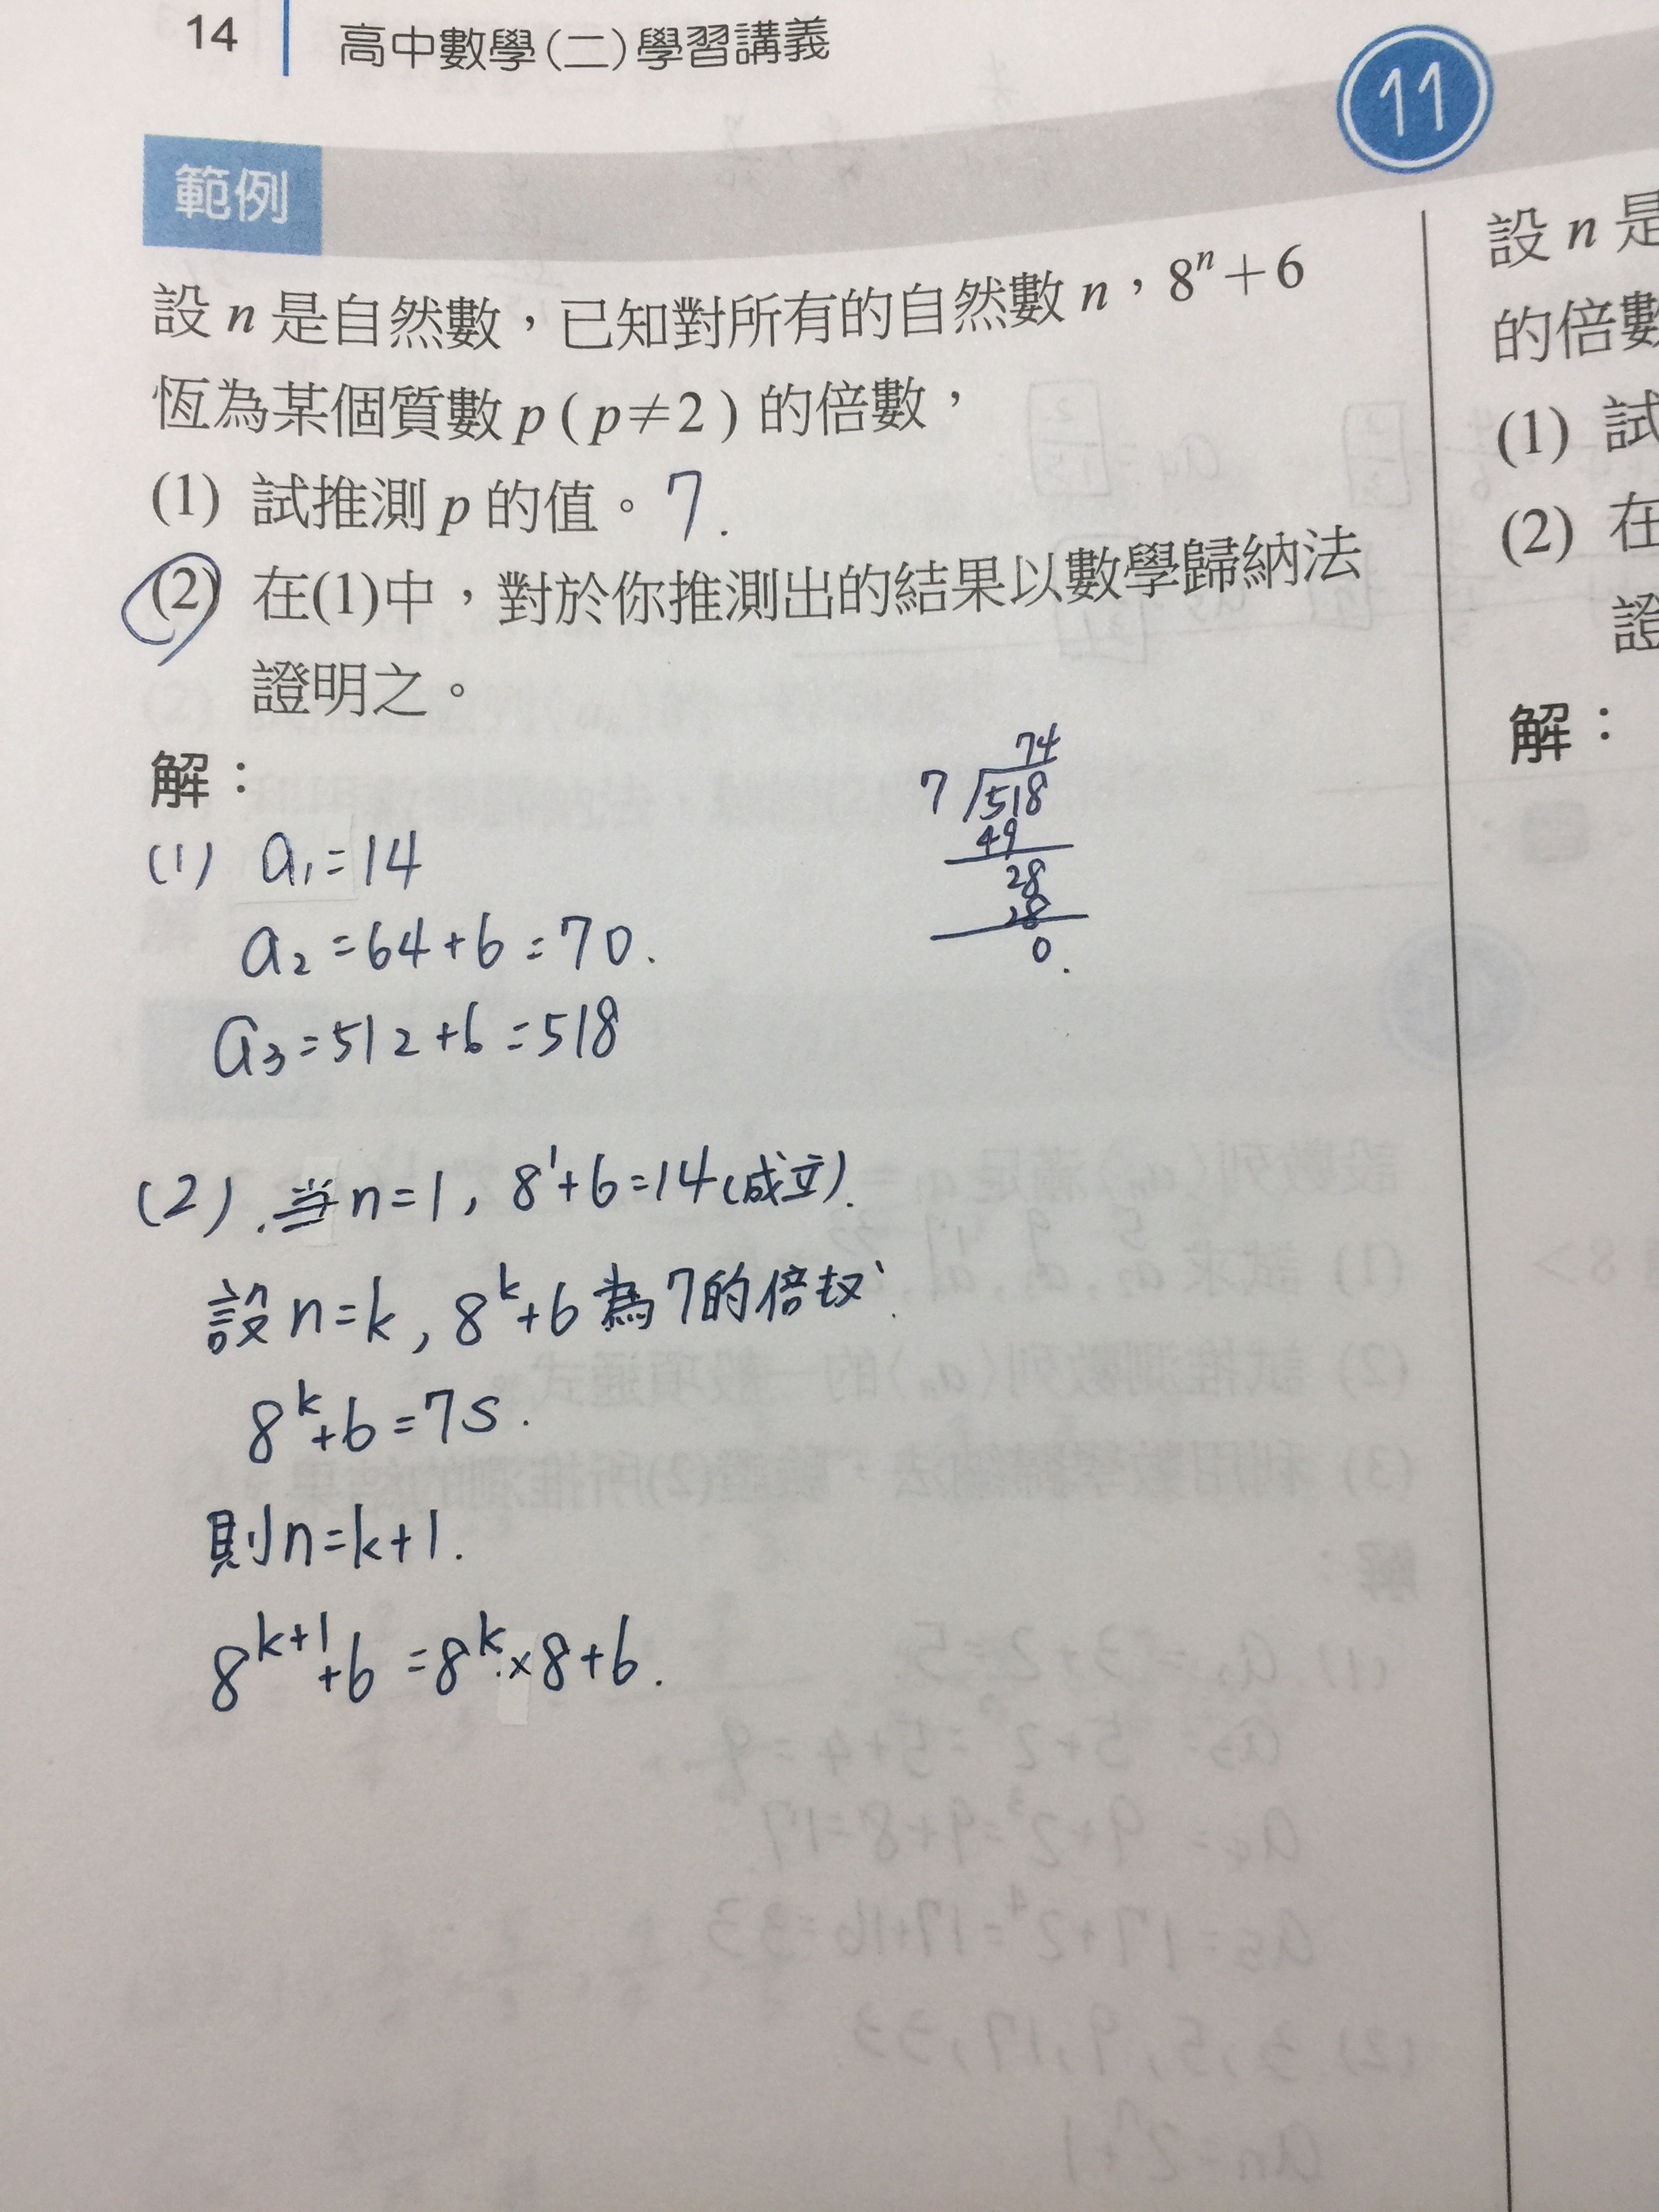 14 高中數學(二)學習講義
11
範例
設 n 是自然數，已知對所有的自然數 n，8ⁿ+6
恆為某個質數 p ( p≠2 ) 的倍數，
(1) 試推測 p 的值。7.
(2) 在(1)中，對於你推測出的結果以數學歸納法
證明之。
解：
(1) a₁=14
a₂=64+6=70.
a₃=512+6=518
74
7 518
49
28
28
0.
(2). 当 n=1, 8¹+6=14(成立).
設 n=k, 8ᵏ+6 為7的倍
8ᵏ+6=7s.
則n=k+1.
8ᵏ⁺¹+6=8ᵏ×8+6.
設 n 是
的倍數
(1) 試
(2) 在
證
解：